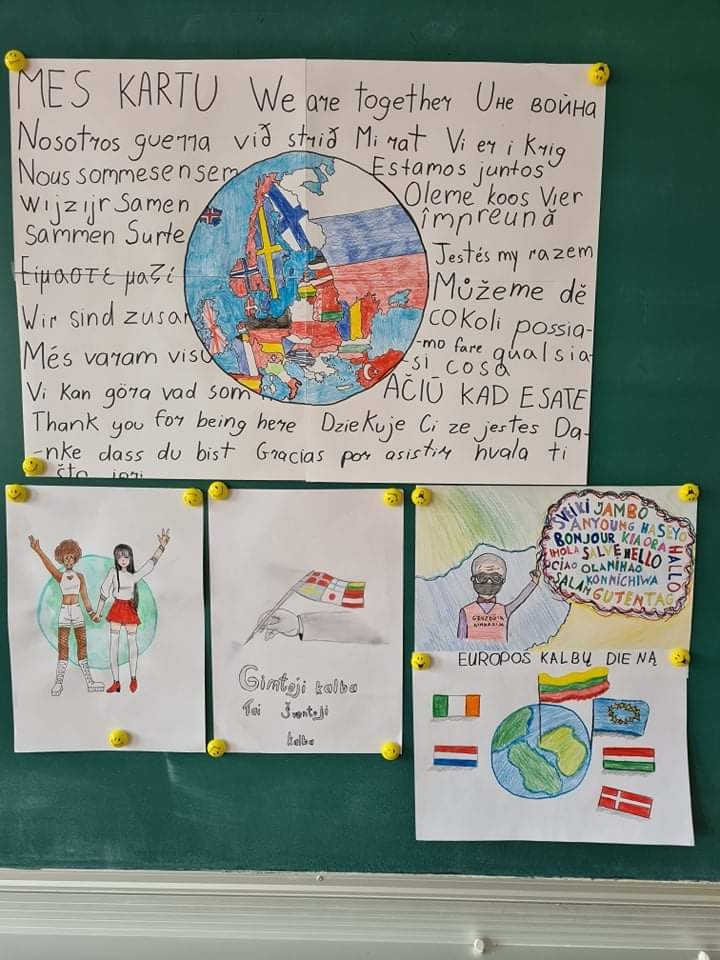 MES KARTU We are together Une война
Nosotros guerra við strið Mi rat Vi er i Krig
Nous sommes ensem Estamos juntos
Wijzijr Samen Oleme koos Vier
Sammen Surte împreună
Είμαστε μαζί Jestés my razem
Wir sind zusar Můžeme dě
cokoli possia-
Més varam visu -mo fare qualsia-
si cosa
Vi kan göra vad som AČIŪ KAD ESATE
Thank you for being here Dziekuje Ci ze jestes Da-
-nke dass du bist Gracias por asistir hvala ti
što
Gimtoji kalba
Tai Šventoji
kalba
SVEIKI JAMBO
ANYOUNG HASEYO
BONJOUR KIAORA
!HOLA SALVE HELLO
CIAO OLA NIHAO
KONNICHIWA
SALAM GUTENTAG
HALLO
GRUZDŽIŲ
GIMNAZIJA
EUROPOS KALBŲ DIENĄ